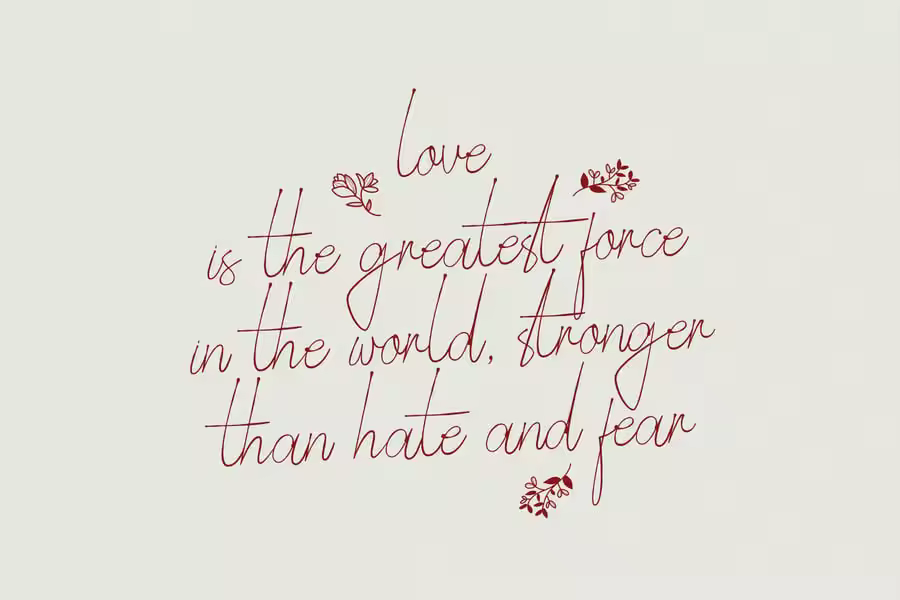 love
is the greatest force
in the world, stronger
than hate and fear